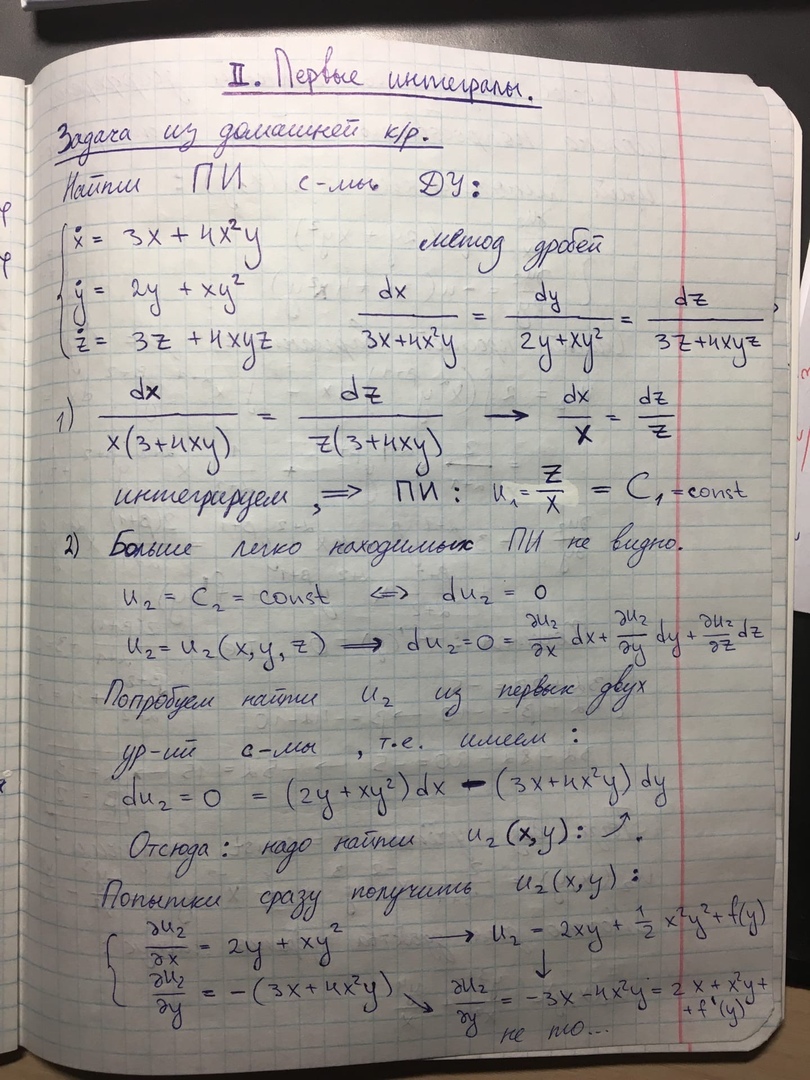 II. Первые интегралы.
Задача из домашней к/р.
Найти ПИ с-мы ДУ:
ẋ = 3x + 4x²y метод дробей
ẏ = 2y + xy² dx/(3x+4x²y) = dy/(2y+xy²) = dz/(3z+4xyz),
ż = 3z + 4xyz
1) dx/(x(3+4xy)) = dz/(z(3+4xy)) → dx/x = dz/z
интегрируем, ⇒ ПИ: u₁ = z/x = C₁ = const
2) Больше легко находимых ПИ не видно.
u₂ = C₂ = const ⇔ du₂ = 0
u₂ = u₂(x,y,z) ⇒ du₂=0 = ∂u₂/∂x dx + ∂u₂/∂y dy + ∂u₂/∂z dz
Попробуем найти u₂ из первых двух
ур-ий с-мы, т.е. имеем:
du₂ = 0 = (2y + xy²)dx - (3x+4x²y)dy
Отсюда: надо найти u₂(x,y): ↗.
Попытки сразу получить u₂(x,y):
∂u₂/∂x = 2y + xy² → u₂ = 2xy + 1/2 x²y² + f(y)
↓
∂u₂/∂y = -(3x+4x²y) ↘ ∂u₂/∂y = -3x-4x²y = 2x + x²y +
+ f'(y)
не то...